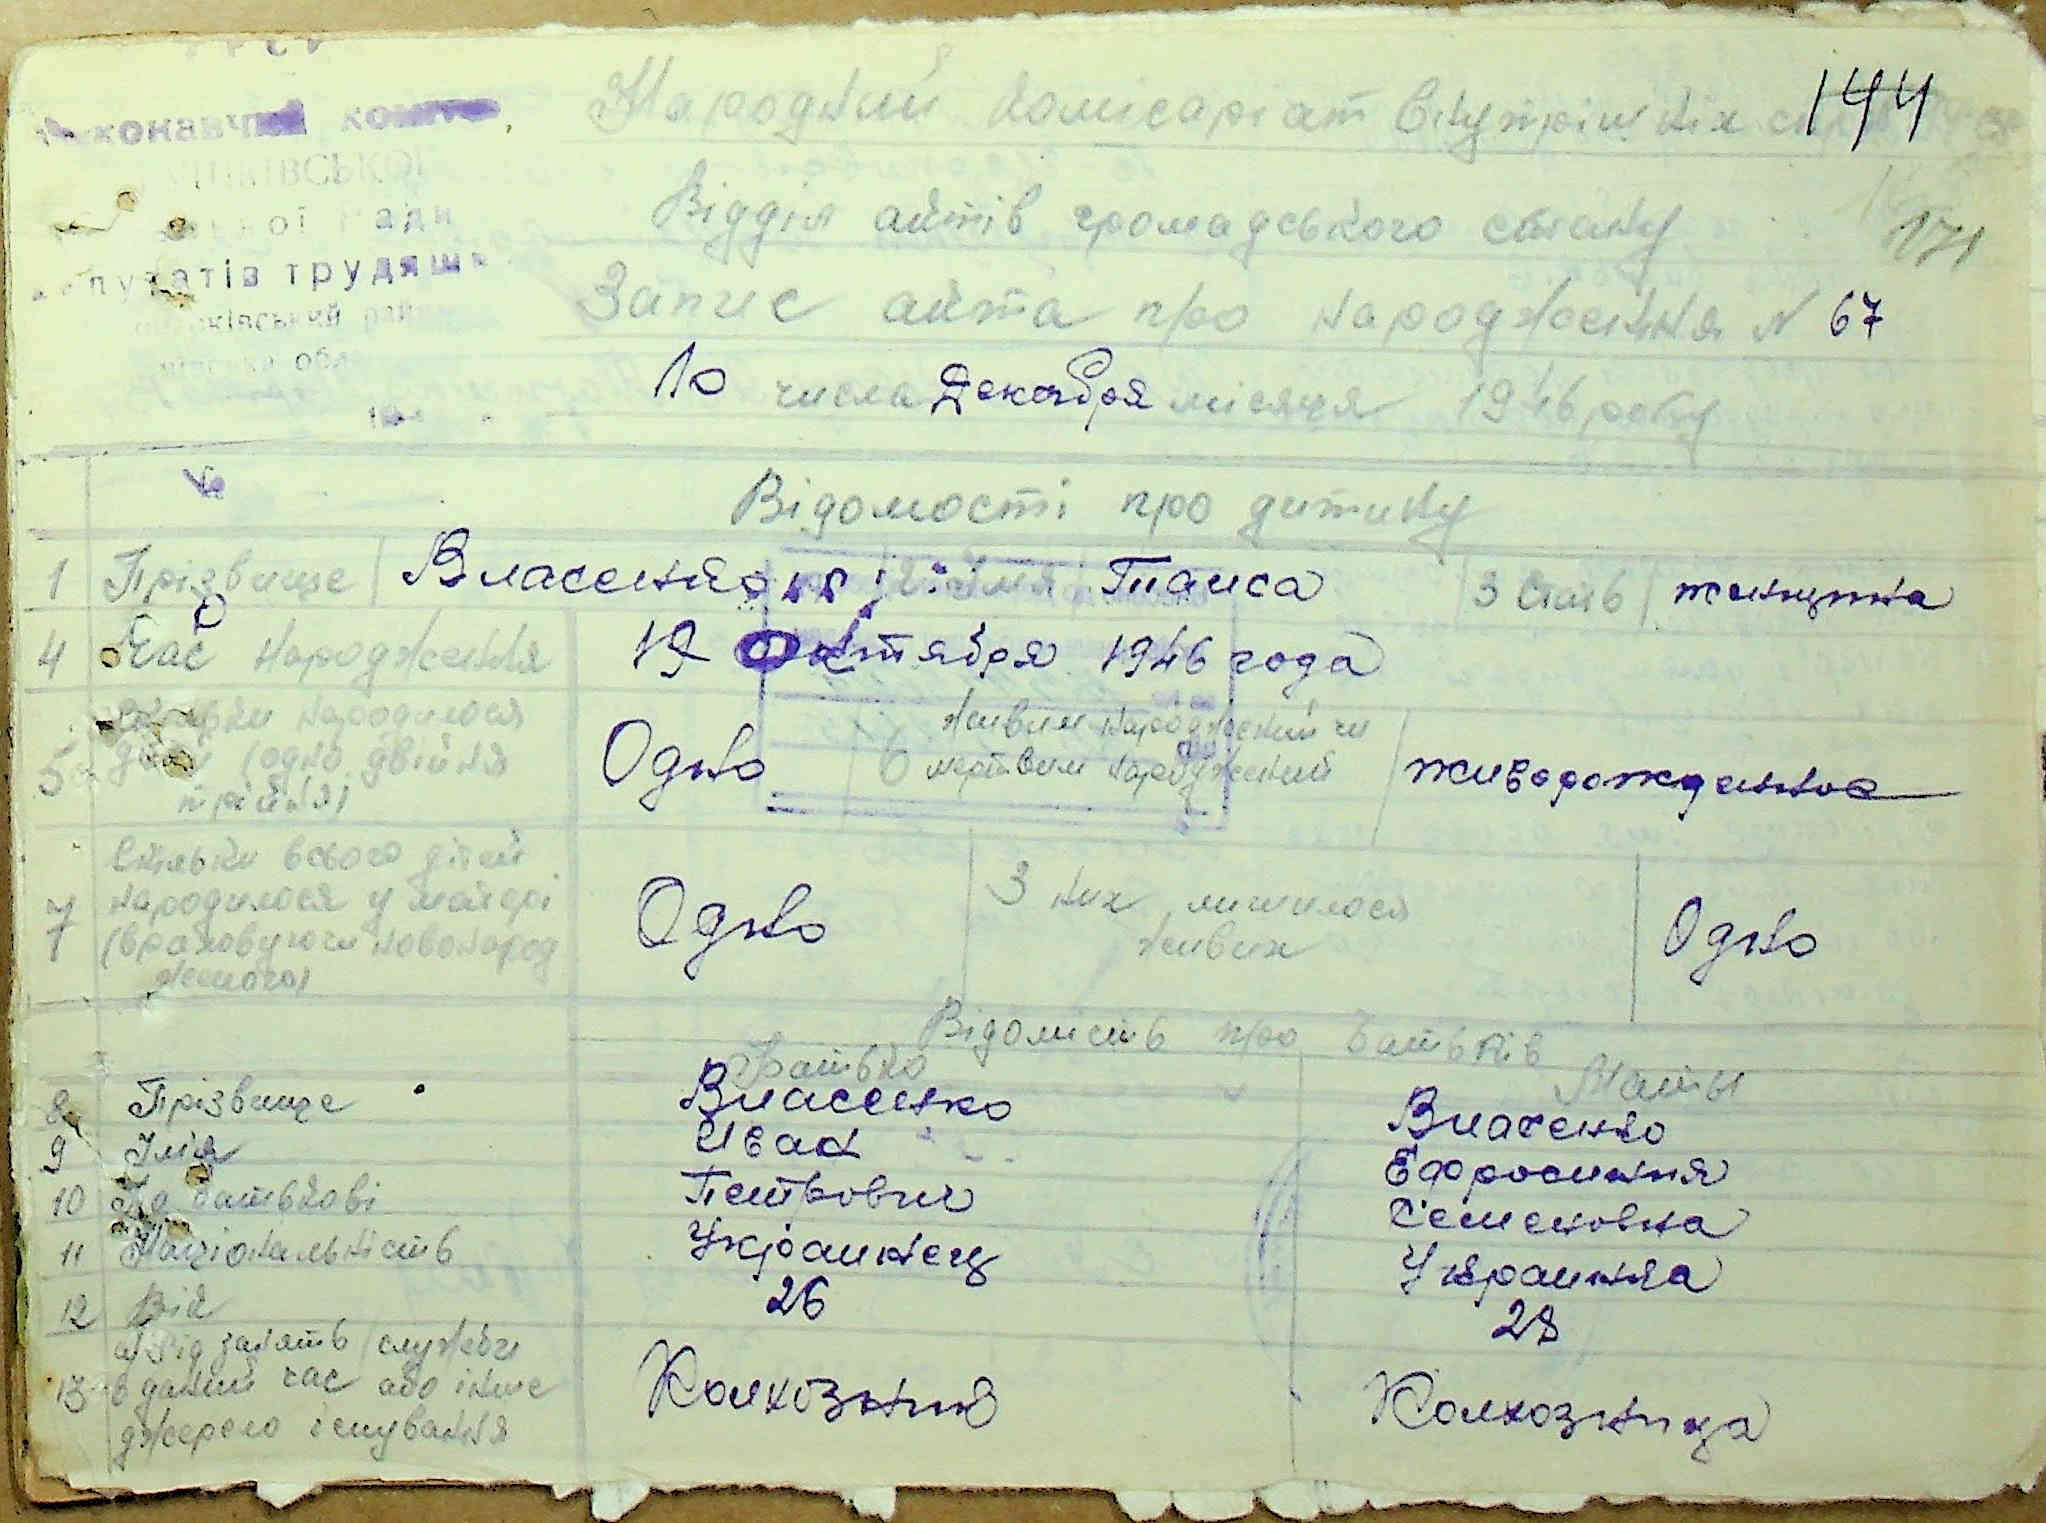 144
Народний комісаріат внутрішніх справ
Відділ актів громадського стану
171
Запис акта про народження N 67
10 числа Декабря місяця 1946 року
депутатів трудящих
Відомості про дитину
1 Прізвище Власенко Імя Таиса 3 Стать женщина
4 Час народження 19 Октября 1946 года
5 Скільки народилося дітей (одно двійня трійня) Одно 6 живим народжений чи мертвим народжений живорожденное
7 Скільки всього дітей народилося у матері (враховуючи новонародженого) Одно З них лишилося живих Одно
Відомість про батьків
Батько Мати
8 Прізвище Власенко Власенко
9 Імя Иван Ефросиния
10 По батькові Петрович Семеновна
11 Національність Украинец Украинка
12 Вік 26 28
13 а) Вид занять (служби в даний час або інше джерело існування Колхозник Колхозница